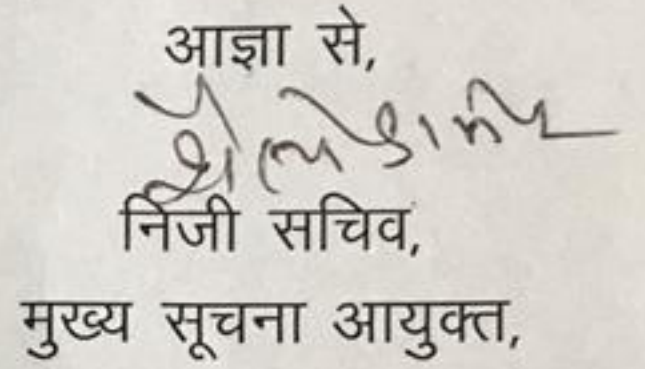 आज्ञा से,
निजी सचिव,
मुख्य सूचना आयुक्त,